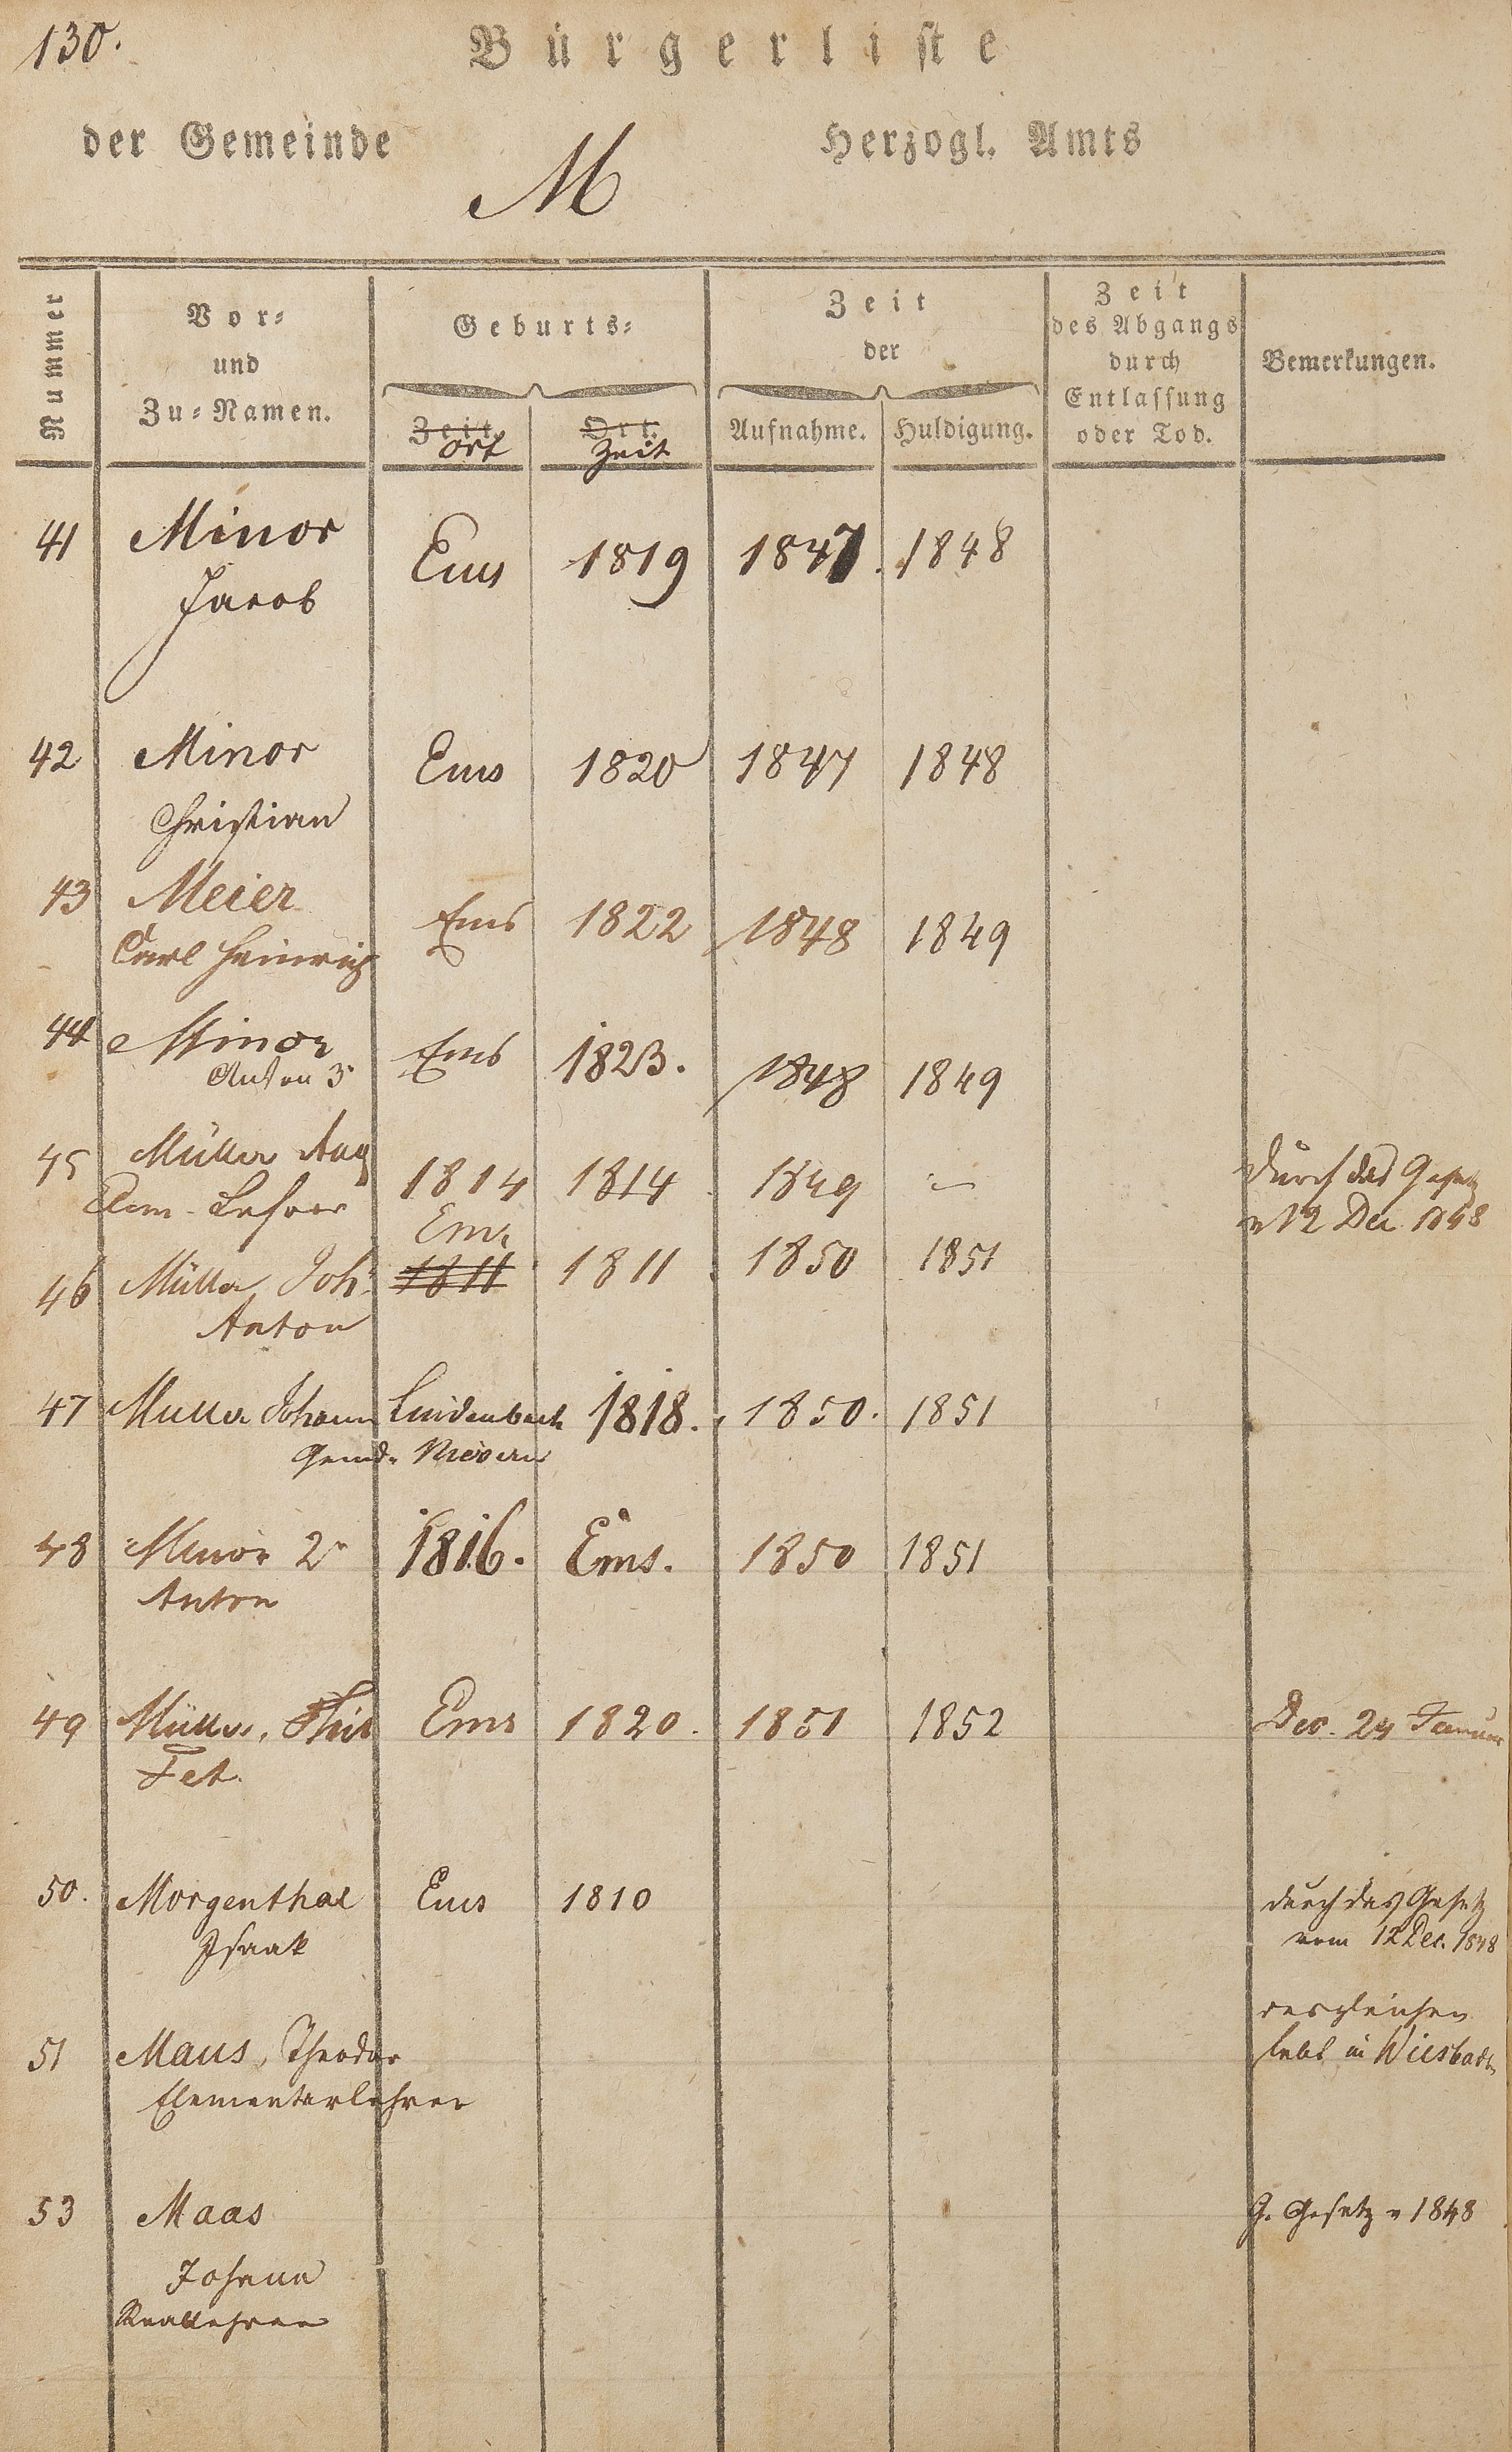 130.
Bürgerliste
der Gemeinde Herzogl. Amts
M
Nummer
Vor-
und
Zu-Namen.
Geburts-
Zeit. Ort.
Ort Zeit
Zeit
der
Aufnahme. Huldigung.
Zeit
des Abgangs
durch
Entlassung
oder Tod.
Bemerkungen.
41 Minor Ems 1819 1847. 1848
Jacob
42 Minor Ems 1820 1847 1848
Christian
43 Meier Ems 1822 1848 1849
Carl Heinrich
44 Minor Ems 1823. 1848 1849
Anton 3r
45 Müller Aug 1814 1814 1849 – durch das Gesetz
Elem. Lehrer v 12 Dec 1848
Ems
46 Müller Joh. 1811 1811 1850 1851
Anton
47 Muller Johann Lindenbach 1818. 1850. 1851
Gemd. Nievern
48 Minor 2r 1816. Ems. 1850 1851
Anton
49 Müller, Ems 1820. 1851 1852 Dec. 24 Januar
Pet.
50. Morgenthal Ems 1810 durch das Gesetz
Isaak vom 12 Dec. 1848
desgleichen
51 Maus, Theodor lebt in Wiesbaden
Elementarlehrer
53 Maas G. Gesetz v 1848
Johann
Reallehrer